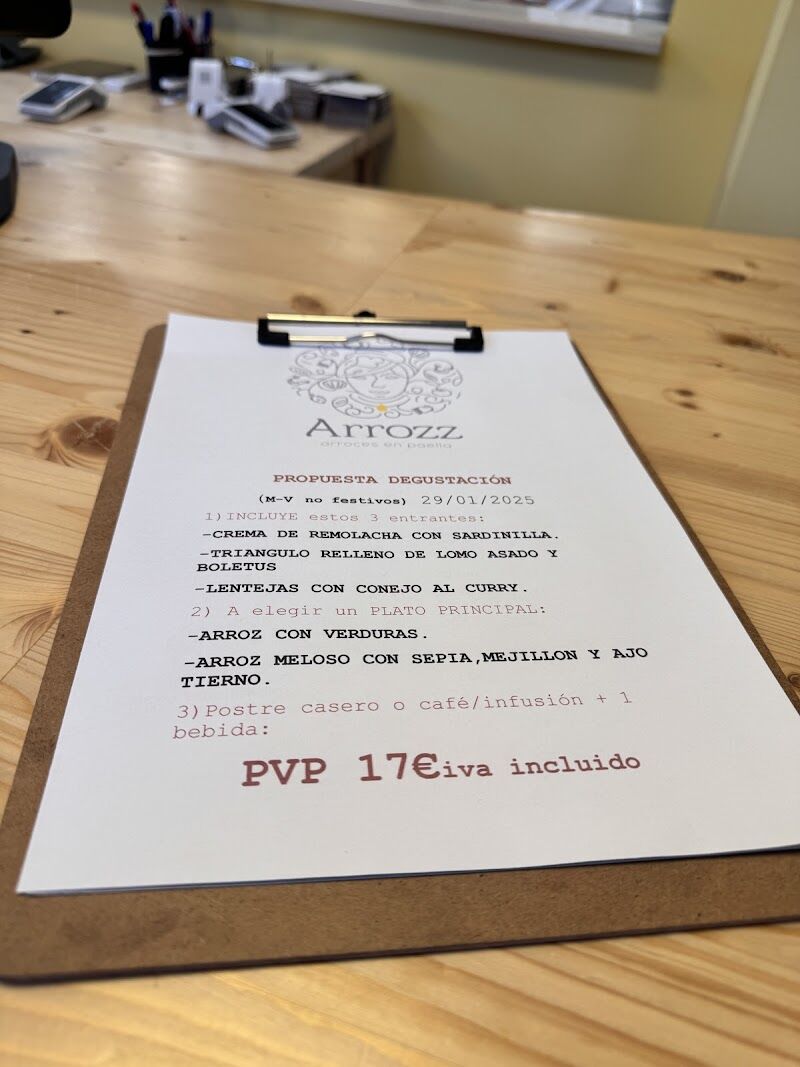 Arrozz
arroces en paella
PROPUESTA DEGUSTACIÓN
(M-V no festivos) 29/01/2025
1)INCLUYE estos 3 entrantes:
-CREMA DE REMOLACHA CON SARDINILLA.
-TRIANGULO RELLENO DE LOMO ASADO Y
BOLETUS
-LENTEJAS CON CONEJO AL CURRY.
2) A elegir un PLATO PRINCIPAL:
-ARROZ CON VERDURAS.
-ARROZ MELOSO CON SEPIA,MEJILLON Y AJO
TIERNO.
3)Postre casero o café/infusión + 1
bebida:
PVP 17€iva incluido